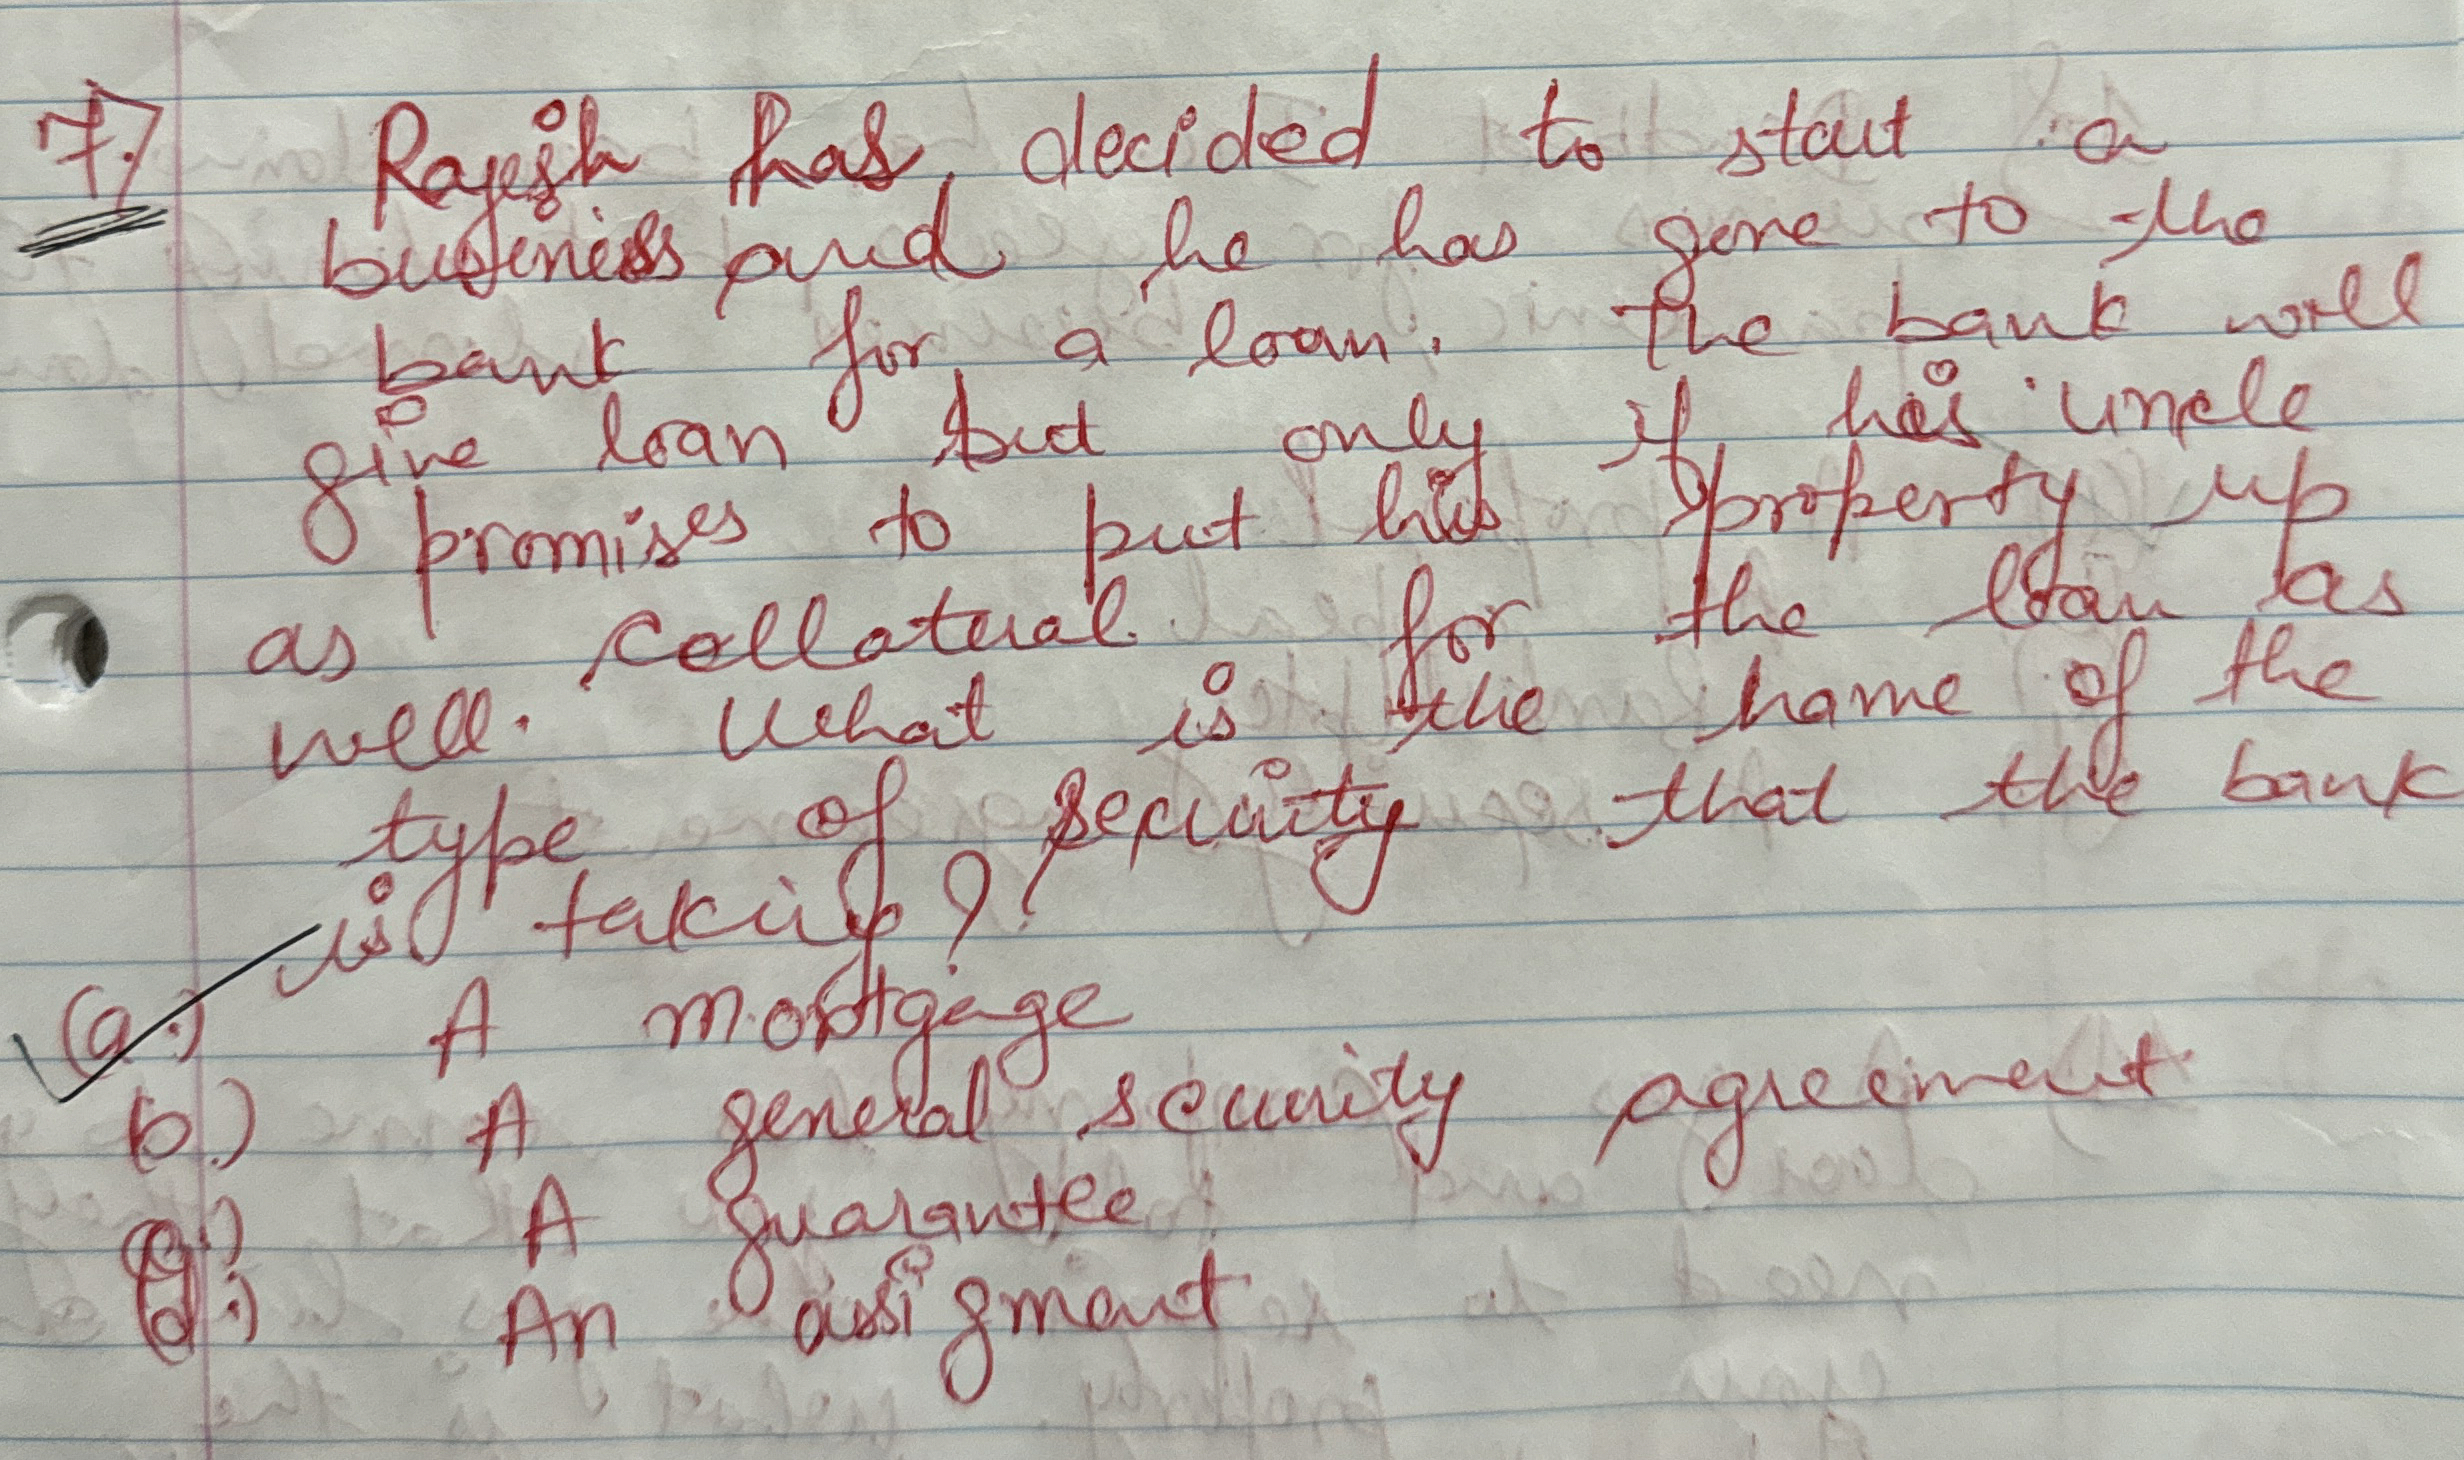 7.)
Rajesh has decided to start a
business and he has gone to the
bank for a loan. The bank will
give loan but only if his uncle
promises to put his property up
as collateral for the loan as
well. What is the name of the
type of security that the bank
is taking?
(a.) A mortgage
b.) A general security agreement
c.) A guarantee
d.) An assigment